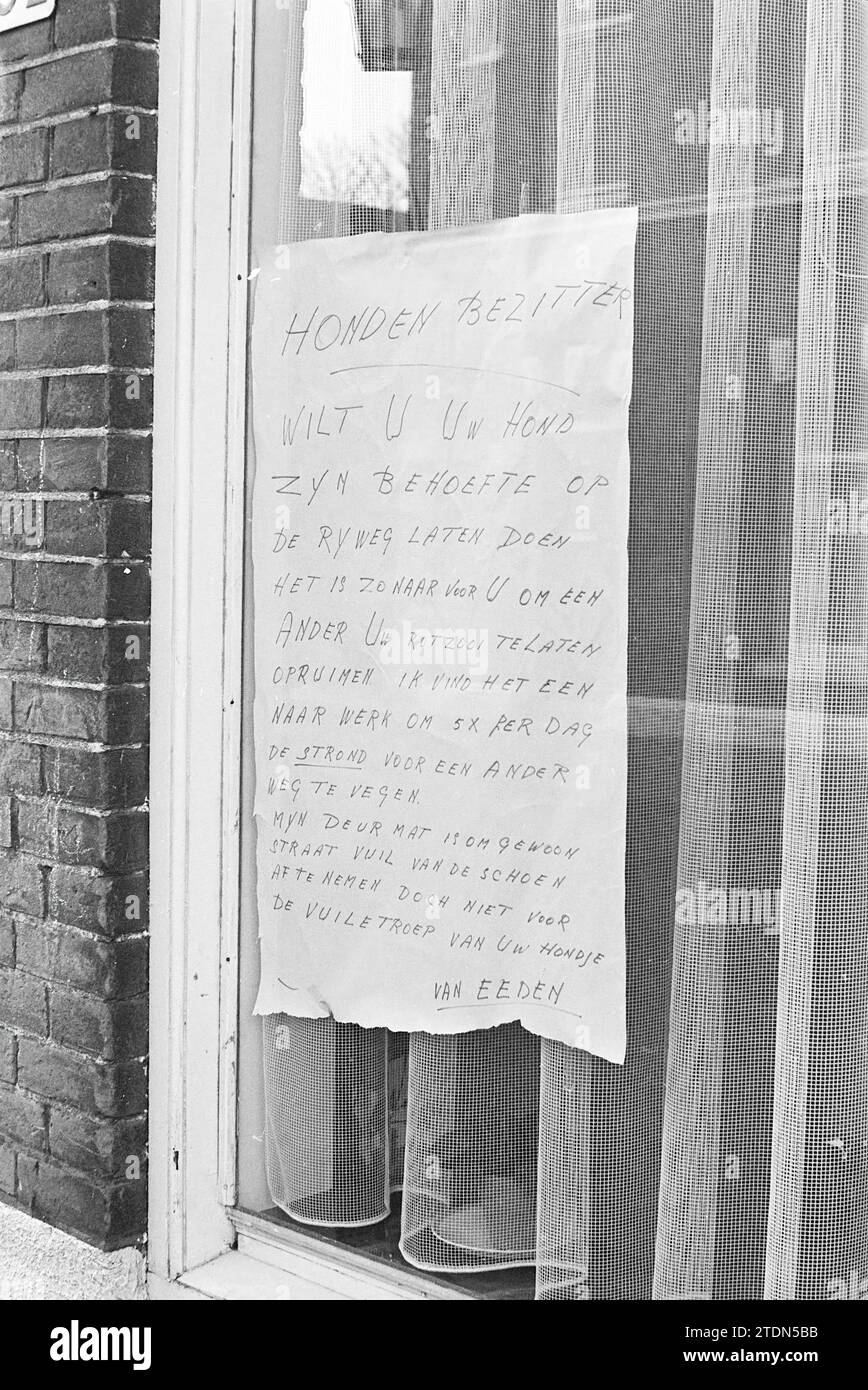 HONDEN BEZITTER
WILT U UW HOND
ZYN BEHOEFTE OP
DE RYWEG LATEN DOEN
HET IS ZO NAAR VOOR U OM EEN
ANDER UW ROTZOOI TE LATEN
OPRUIMEN IK VIND HET EEN
NAAR WERK OM 5X PER DAG
DE STROND VOOR EEN ANDER
WEG TE VEGEN.
MYN DEUR MAT IS OM GEWOON
STRAAT VUIL VAN DE SCHOEN
AF TE NEMEN DOCH NIET VOOR
DE VUILE TROEP VAN UW HONDJE
VAN EEDEN
alamy
alamy
alamy
alamy
Image ID: 2TDN5BB
www.alamy.com